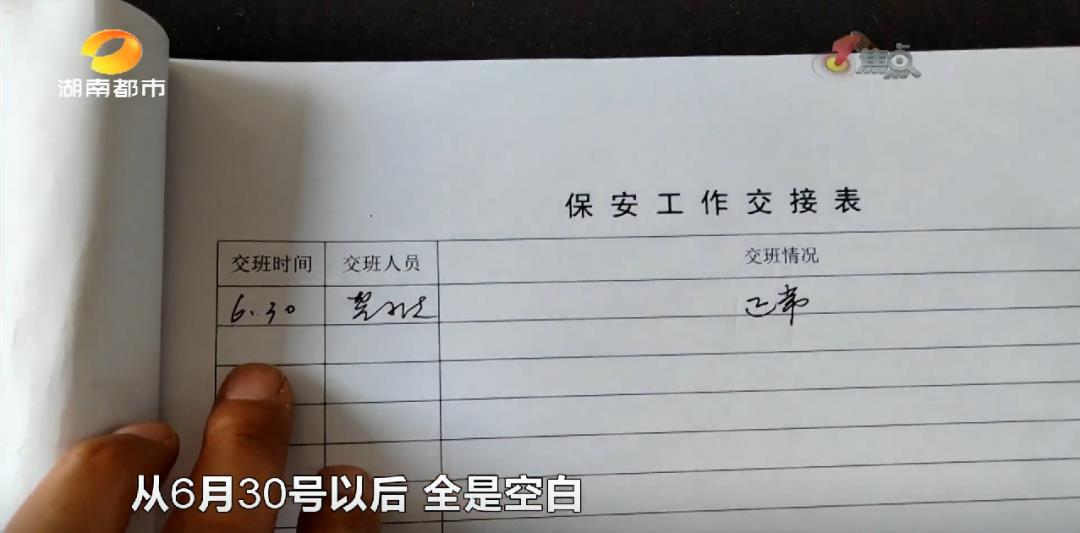 湖南都市
焦点
保安工作交接表
交班时间 交班人员 交班情况
6.30 正常
从6月30号以后 全是空白